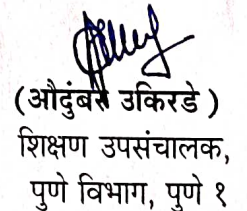 (औदुंबर उकिरडे )
शिक्षण उपसंचालक,
पुणे विभाग, पुणे १